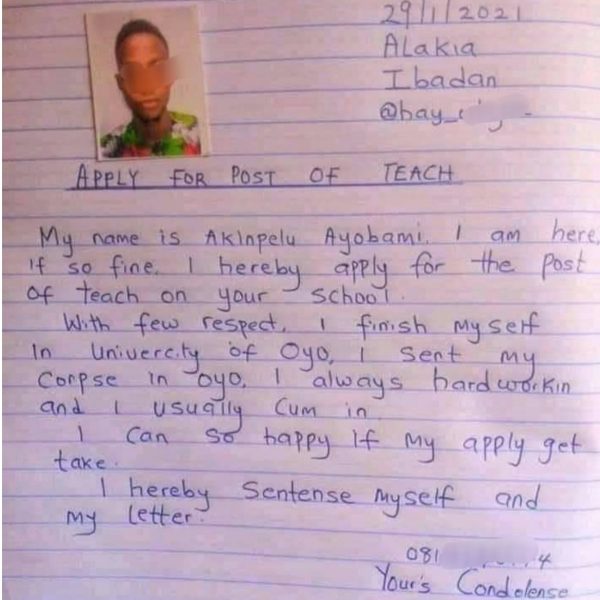 29/1/2021
Alakia
Ibadan
@bay_
APPLY FOR POST OF TEACH
My name is Akinpelu Ayobami. I am here,
if so fine. I hereby apply for the post
of teach on your school.
With few respect, I finish myself
In Univercity of Oyo, I sent my
Corpse in oyo, I always hardworkin
and I usually Cum in
I Can so happy If my apply get
take.
I hereby Sentense myself and
my letter.
081 4
Your's Condolense